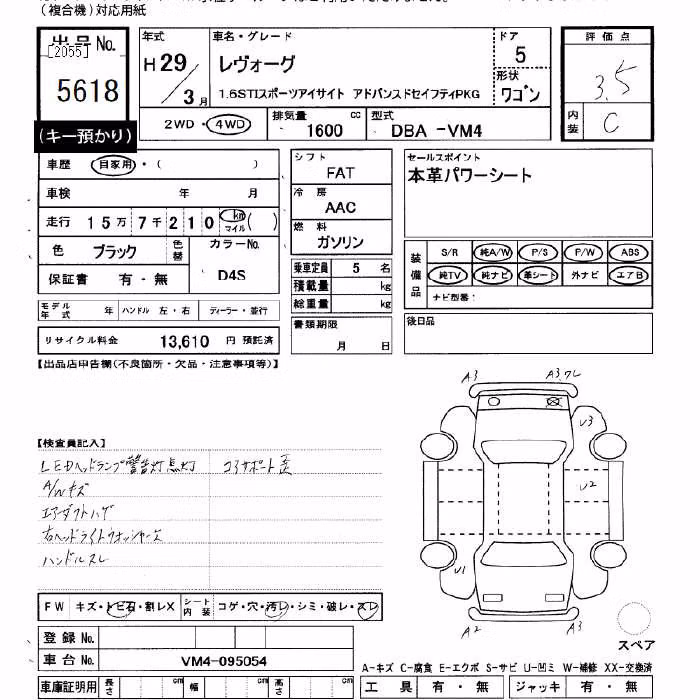 (複合機)対応用紙
出品No.
[2055]
5618
(キー預かり)
年式
H29/3月
車名・グレード
レヴォーグ
1.6STIスポーツアイサイト アドバンスドセイフティPKG
ドア
5
形状
ワゴン
評価点
3.5
内装
C
2WD・4WD
排気量
1600
cc
型式
DBA -VM4
車歴
自家用・( )
車検 年 月
走行 15万7千210 km マイル( )
色 ブラック
色替
カラーNo.
D4S
保証書 有・無
シフト
FAT
冷房
AAC
燃料
ガソリン
乗車定員 5 名
積載量 kg
総重量 kg
セールスポイント
本革パワーシート
装備品
S/R 純A/W P/S P/W ABS
純TV 純ナビ 革シート 外ナビ エアB
ナビ型番:
モデル年式 年 ハンドル 左・右 ディーラー・並行
リサイクル料金 13,610 円 預託済
書類期限
月 日
後日品
【出品店申告欄(不良箇所・欠品・注意事項等)】
【検査員記入】
LEDヘッドランプ警告灯点灯 コアサポート歪
A/Wキズ
エアダクトハゲ
右ヘッドライトウォッシャーズ
ハンドルスレ
A3 A3.7L
U3
U2
U1
A2 A3
スペア
FW キズ・トビ石・割レX
シート内装 コゲ・穴・汚レ・シミ・破レ・スレ
登録No.
車台No. VM4-095054
車庫証明用 長さ cm 幅 cm 高さ cm
A-キズ C-腐食 E-エクボ S-サビ U-凹ミ W-補修 XX-交換済
工具 有・無 ジャッキ 有・無